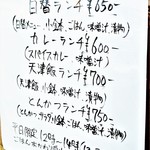 日替ランチ ¥650-
(日替メニュー、小鉢、ごはん、味噌汁、漬物)
カレーランチ ¥600-
(スパイスカレー、味噌汁)
天津飯ランチ ¥700-
(天津飯、小鉢、味噌汁、漬物)
とんかつランチ ¥750-
(とんかつ、サラダ、小鉢、ごはん、味噌汁、漬物)
平日限定 12時